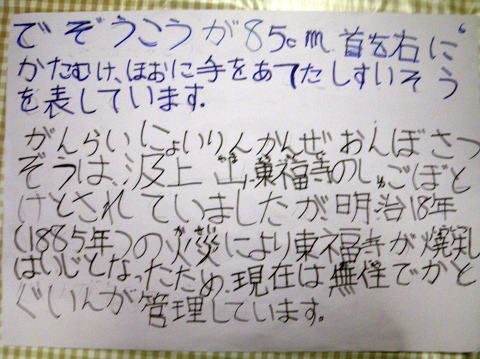 でぞうこうが85cm.首を右に
かたむけ、ほおに手をあてたしすいそう
を表しています.
がんらいにょいりんかんぜおんぼさつ
ぞうは、汲上山東福寺のしゅごぼと
けとされていましたが、明治18年
(1885年)の火災により東福寺が焼失し
はいじとなったため、現在は無住でかと
くいんが管理しています.